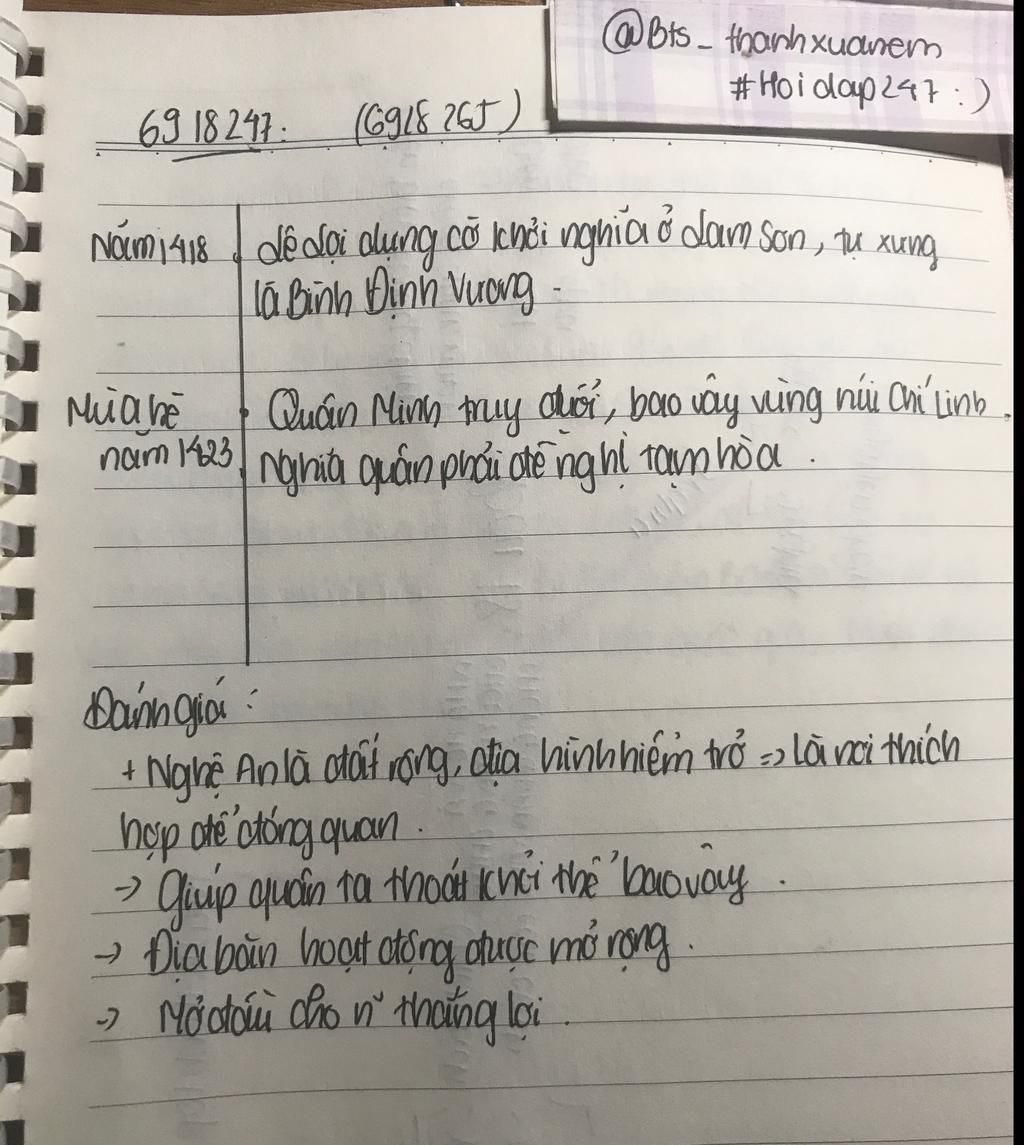 @Bts_thanhxuanem
#Hoidap247 :)
6918247: (6918265)
Năm 1418 Lê Lợi dựng cờ khởi nghĩa ở Lam Sơn, tự xưng
là Bình Định Vương.
Mùa hè Quân Minh truy đuổi, bao vây vùng núi Chí Linh.
năm 1423 Nghĩa quân phải đề nghị tạm hòa.
Đánh giá:
+ Nghệ An là đất rộng, địa hình hiểm trở => Là nơi thích
hợp để đóng quan.
-> Giúp quân ta thoát khỏi thế bao vây.
-> Địa bàn hoạt động được mở rộng.
-> Mở đầu cho n~ thắng lợi.